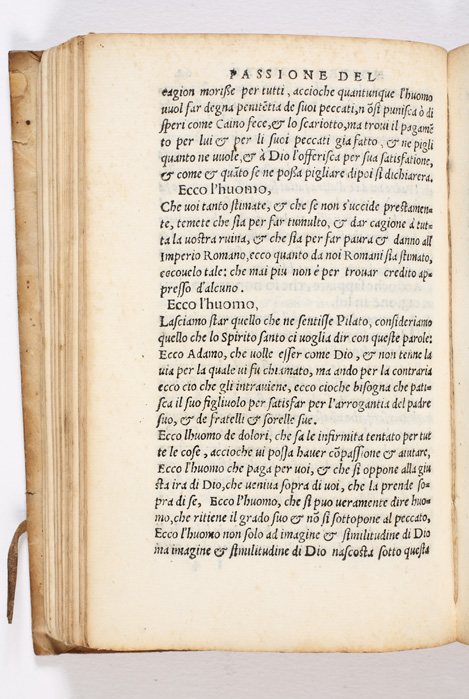 PASSIONE DEL
cagion morisse per tutti, accioche quantunque l'huomo
vuol far degna penitētia de suoi peccati, nō si punisca ò di
speri come Caino fece, & lo scariotto, ma troui il pagamē
to per lui & per li suoi peccati gia fatto, & ne pigli
quanto ne vuole, & à Dio l'offerisca per sua satisfatione,
& come & quāto se ne possa pigliare dipoi si dichiarera.
Ecco l'huomo,
Che voi tanto stimate, & che se non s'uccide prestamen-
te, temete che stia per far tumulto, & dar cagione à tut-
ta la vostra ruina, & che stia per far paura & danno all
Imperio Romano, ecco quanto da noi Romani sia stimato,
eccouelo tale: che mai piu non è per trouar credito ap-
presso d'alcuno.
Ecco l'huomo,
Lasciamo star quello che ne sentisse Pilato, consideriamo
quello che lo Spirito santo ci voglia dir con queste parole:
Ecco Adamo, che volle esser come Dio, & non tenne la
via per la quale vi fu chiamato, ma ando per la contraria
ecco cio che gli intrauiene, ecco cioche bisogna che pati-
sca il suo figliuolo per satisfar per l'arrogantia del padre
suo, & de fratelli & sorelle sue.
Ecco lhuomo de dolori, che sa le infirmita tentato per tut
te le cose, accioche vi possa hauer cōpassione & aiutare,
Ecco l'huomo che paga per voi, & che si oppone alla giu
sta ira di Dio, che veniua sopra di voi, che la prende so-
pra di se, Ecco l'huomo, che si puo veramente dire huo-
mo, che ritiene il grado suo & nō si sottopone al peccato,
Ecco l'huomo non solo ad imagine & similitudine di Dio
ma imagine & similitudine di Dio nascosta sotto questa